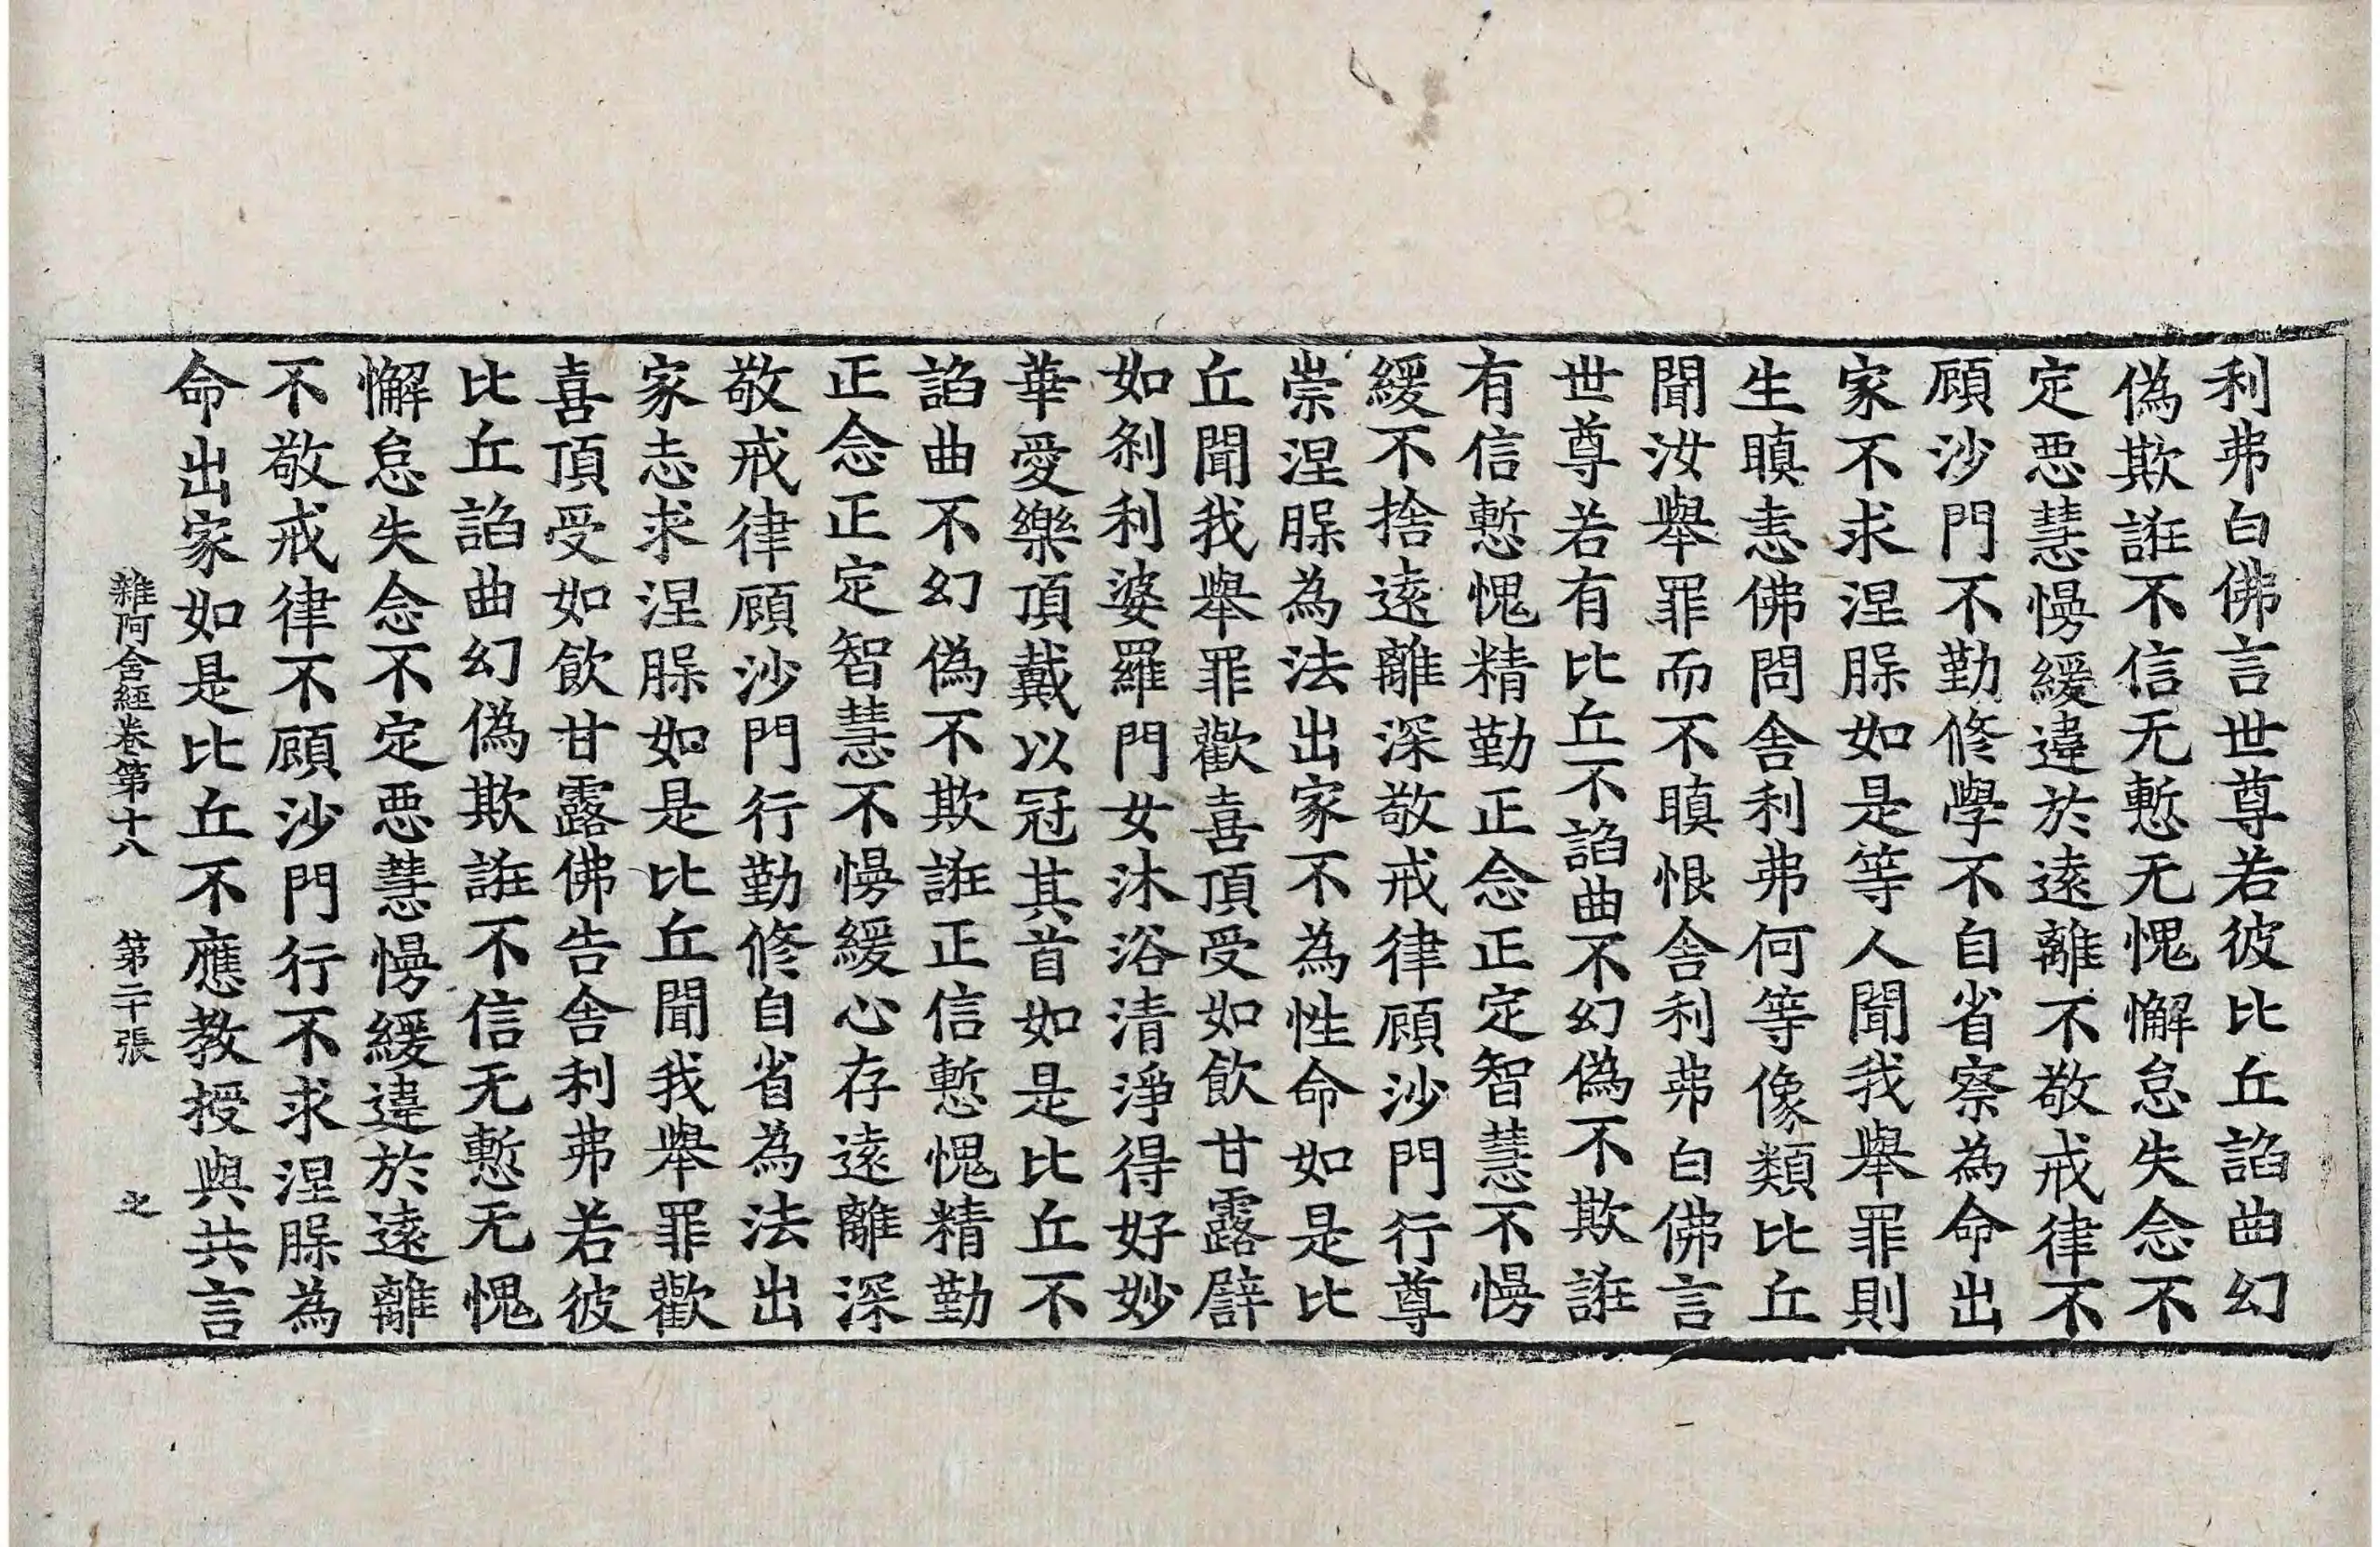 利弗白佛言世尊若彼比丘諂曲幻
偽欺誑不信无慙无愧懈怠失念不
定惡慧慢緩違於遠離不敬戒律不
顧沙門不勤修學不自省察為命出
家不求涅槃如是等人聞我舉罪則
生瞋恚佛問舍利弗何等像類比丘
聞汝舉罪而不瞋恨舍利弗白佛言
世尊若有比丘不諂曲不幻偽不欺誑
有信慙愧精勤正念正定智慧不慢
緩不捨遠離深敬戒律顧沙門行尊
崇涅槃為法出家不為性命如是比
丘聞我舉罪歡喜頂受如飲甘露譬
如剎利婆羅門女沐浴清淨得好妙
華愛樂頂戴以冠其首如是比丘不
諂曲不幻偽不欺誑正信慙愧精勤
正念正定智慧不慢緩心存遠離深
敬戒律顧沙門行勤修自省為法出
家志求涅槃如是比丘聞我舉罪歡
喜頂受如飲甘露佛告舍利弗若彼
比丘諂曲幻偽欺誑不信无慙无愧
懈怠失念不定惡慧慢緩違於遠離
不敬戒律不顧沙門行不求涅槃為
命出家如是比丘不應教授與共言
雜阿含經卷第十八 第二十張 之